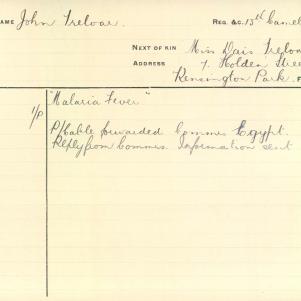 NAME John Treloar. REG. &C. 15th Camel
NEXT OF KIN Miss Dais Treloar
ADDRESS 7. Holden Stree
Kensington Park.
1/P "Malaria Fever"
P/Cable forwarded Commes Egypt.
Reply from Commes. Information sent